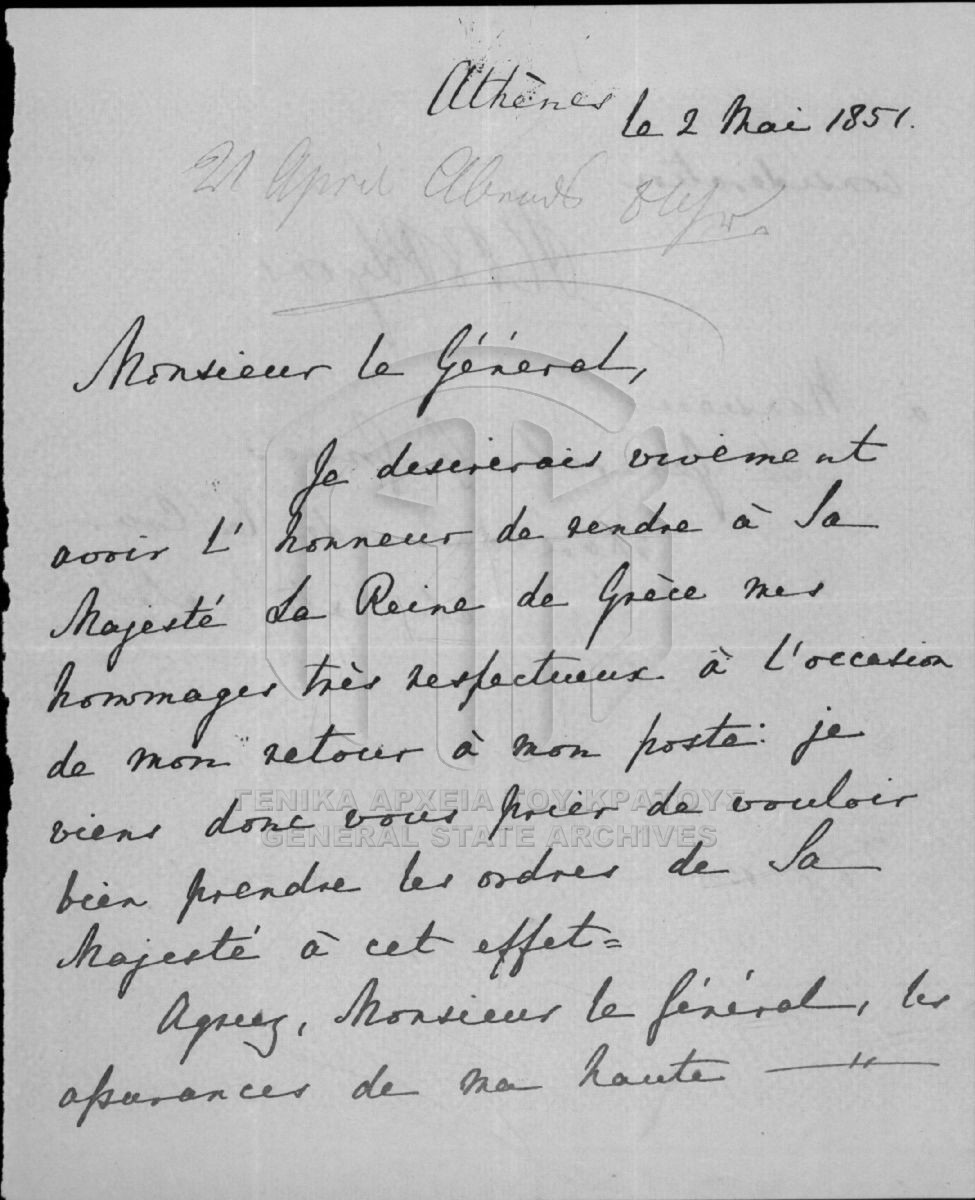 Athènes
le 2 Mai 1851.
21 April Abends 8 Uhr.
Monsieur le Général,
Je desirerais vivement
avoir l'honneur de rendre à Sa
Majesté La Reine de Grèce mes
hommages très respectueux à l'occasion
de mon retour à mon poste: je
viens donc vous prier de vouloir
bien prendre les ordres de Sa
Majesté à cet effet=
Agreez, Monsieur le Général, les
assurances de ma haute
ΓΕΝΙΚΑ ΑΡΧΕΙΑ ΤΟΥ ΚΡΑΤΟΥΣ
GENERAL STATE ARCHIVES